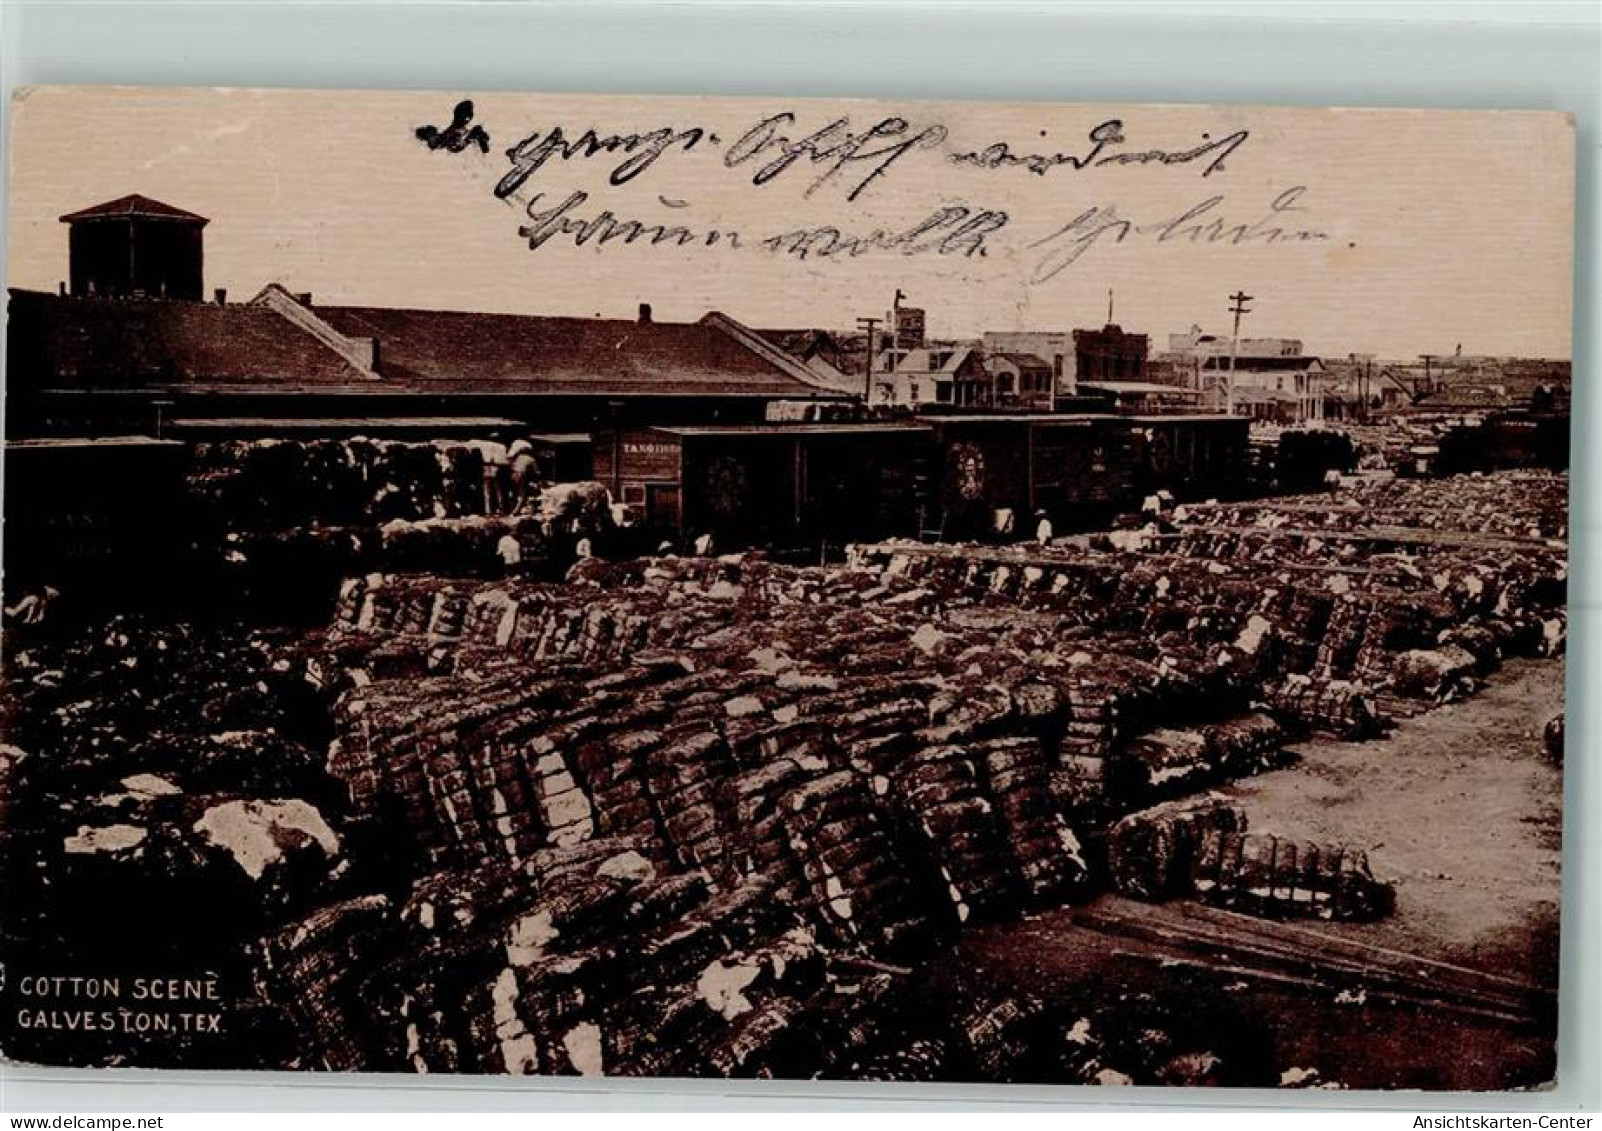 Der ganze Schiff wird mit
Baumwolle geladen.
T.&N.O.
COTTON SCENE
GALVESTON, TEX.
Ansichtskarten-Center